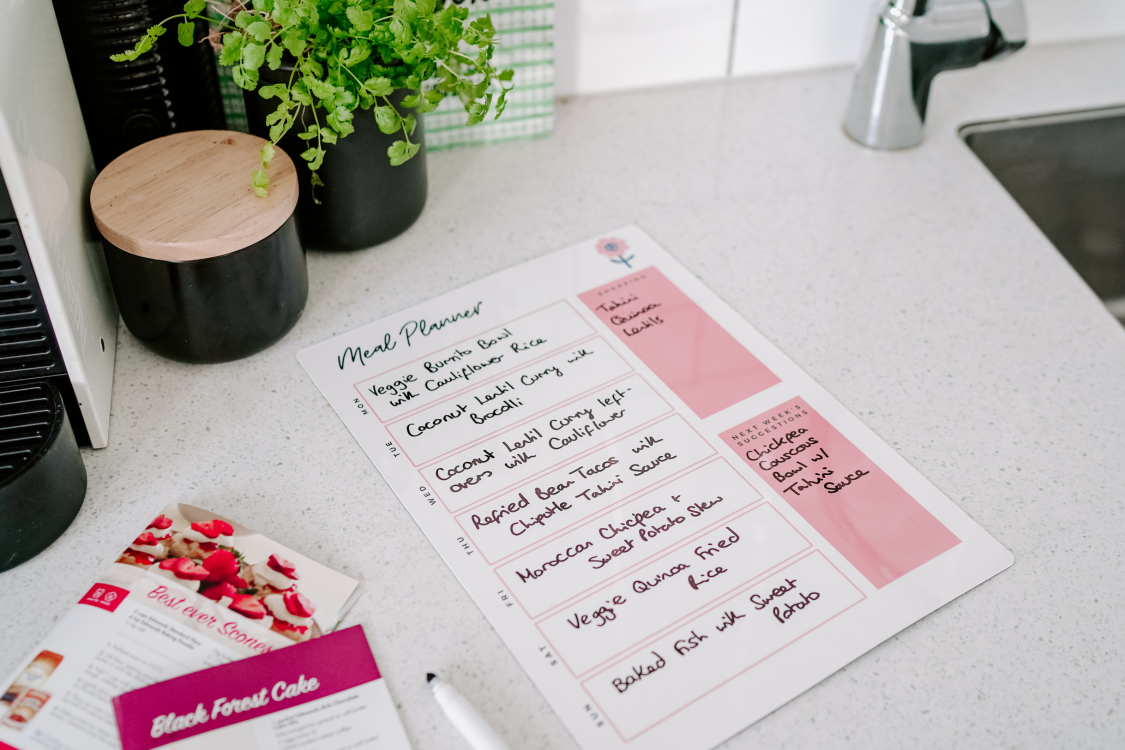 Meal Planner
MON
Veggie Burrito Bowl
with Cauliflower Rice
TUE
Coconut Lentil Curry with
Brocolli
WED
Coconut Lentil Curry left-
overs with Cauliflower
THU
Refried Bean Tacos with
Chipotle Tahini Sauce
FRI
Moroccan Chicpea +
Sweet Potato Stew
SAT
Veggie Quinoa Fried
Rice
SUN
Baked Fish with Sweet
Potato
SHOPPING
Tahini
Quinoa
Lentils
NEXT WEEK'S
SUGGESTIONS
Chickpea
Couscous
Bowl w/
Tahini
Sauce
Best ever Scones
Black Forest Cake